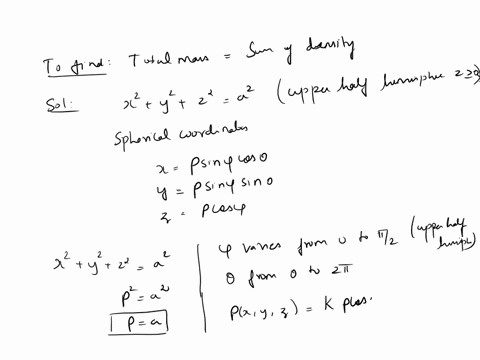 To find: Total mass = Sum of density
Sol: x² + y² + z² = a² (upper half hemisphere z≥0)
Spherical coordinates
x = ρ sinφ cosθ
y = ρ sinφ sinθ
z = ρ cosφ
x² + y² + z² = a²
ρ² = a²
ρ = a
φ varies from 0 to π/2 (upper half
θ from 0 to 2π
ρ(x, y, z) = K ρ cos